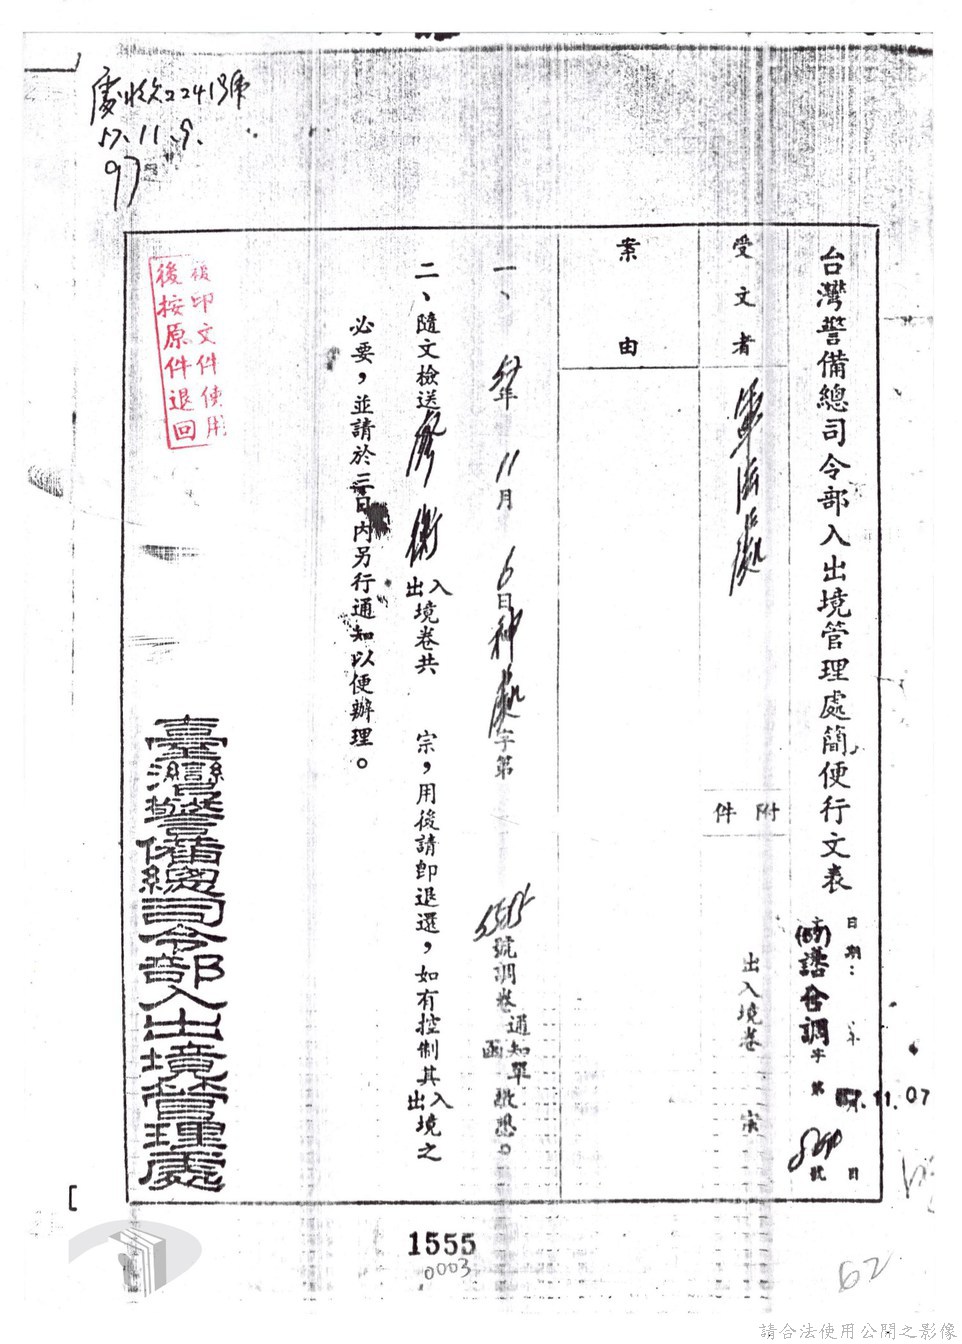 處收文2241號
57.11.9.
台灣警備總司令部入出境管理處簡便行文表
日期：
日
57.11.07
字第
號
受文者
軍法處
附件
出入境卷
宗
案由
一、57年11月6日
處字第
號調卷通知單函敬悉。
二、隨文檢送
入出境卷共 宗，用後請即退還，如有控制其入出境之
必要，並請於三日內另行通知以便辦理。
後印文件使用
後按原件退回
臺灣警備總司令部入出境管理處
1555
0003
62
請合法使用公開之影像